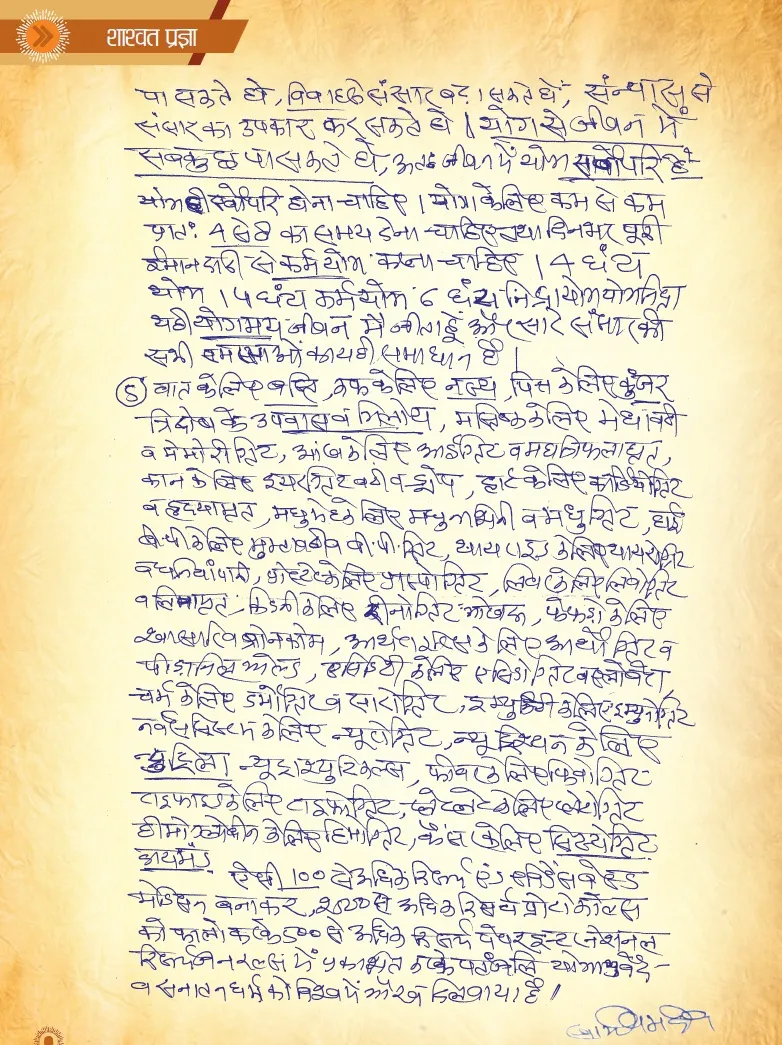 शाश्वत प्रज्ञा
पा सकते हो, विवाह से संसार बढ़ा सकते हैं, संन्यास से
संसार का उपकार कर सकते हो। योग से जीवन में
सबकुछ पा सकते हो, अतः जीवन में योग सर्वोपरि है
योग ही सर्वोपरि होना चाहिए। योग के लिए कम से कम
प्रातः 4 से 8 का समय देना चाहिए तथा दिनभर पूरी
ईमानदारी से कर्मयोग करना चाहिए। 4 घंटे
योग। 14 घंटे कर्मयोग 6 घंटे निद्रा योग योगनिद्रा
यही योगमय जीवन मैं जीता हूँ और सारे संसार की
सभी समस्याओं का यही समाधान है।
5 वात के लिए बस्ति, कफ के लिए नस्य, पित्त के लिए कुंजर
त्रिदोष के उपवास व गिलोय, मस्तिष्क के लिए मेधावटी
व मेमोरीग्रिट, आंख के लिए आईग्रिट व महात्रिफलाघृत,
कान के लिए इयरग्रिट वटी व ड्रोप, हार्ट के लिए कार्डियोग्रिट
व हृदयामृत, मधुमेह के लिए मधुनाशिनी व मधुग्रिट, हाई
बी.पी के लिए मुक्तावटी व बी.पी.ग्रिट, थायराइड के लिए थायरोग्रिट
व धनियां पानी, प्रोस्टेट के लिए प्रास्टोग्रिट, लिवर के लिए लिवोग्रिट
व लिवामृत, किडनी के लिए रीनोग्रिट, फेफड़ों के लिए
श्वासारि व ब्रोनकोम, आर्थराइटिस के लिए आर्थोग्रिट व
पीड़ानिल गोल्ड, एसिडिटी के लिए एसिडोग्रिट व
चर्म के लिए डर्माग्रिट व सोरोग्रिट, इम्युनिटी के लिए इम्युनोग्रिट
नर्वस सिस्टम के लिए न्यूरोग्रिट, न्यूट्रिशन के लिए
न्यूट्रास्युटिकल्स, फीवर के लिए फिवोग्रिट
टाइफाइड के लिए टाइफोग्रिट, प्लेटलेट के लिए प्लेटोग्रिट
हीमोग्लोबीन के लिए हिमोग्रिट, कैंसर के लिए सिस्टोग्रिट
डायमंड
ऐसी 100 से अधिक रिसर्च एंड एविडेंस बेस्ड
मेडिसिन बनाकर, २००० से अधिक रिसर्च प्रोटोकोल्स
को फालो करके ५०० से अधिक रिसर्च पेपर इन्टरनेशनल
रिसर्च जनरल्स में प्रकाशित करके पतंजलि योग आयुर्वेद
व सनातन धर्म को विश्व में गौरव दिलवाया है।